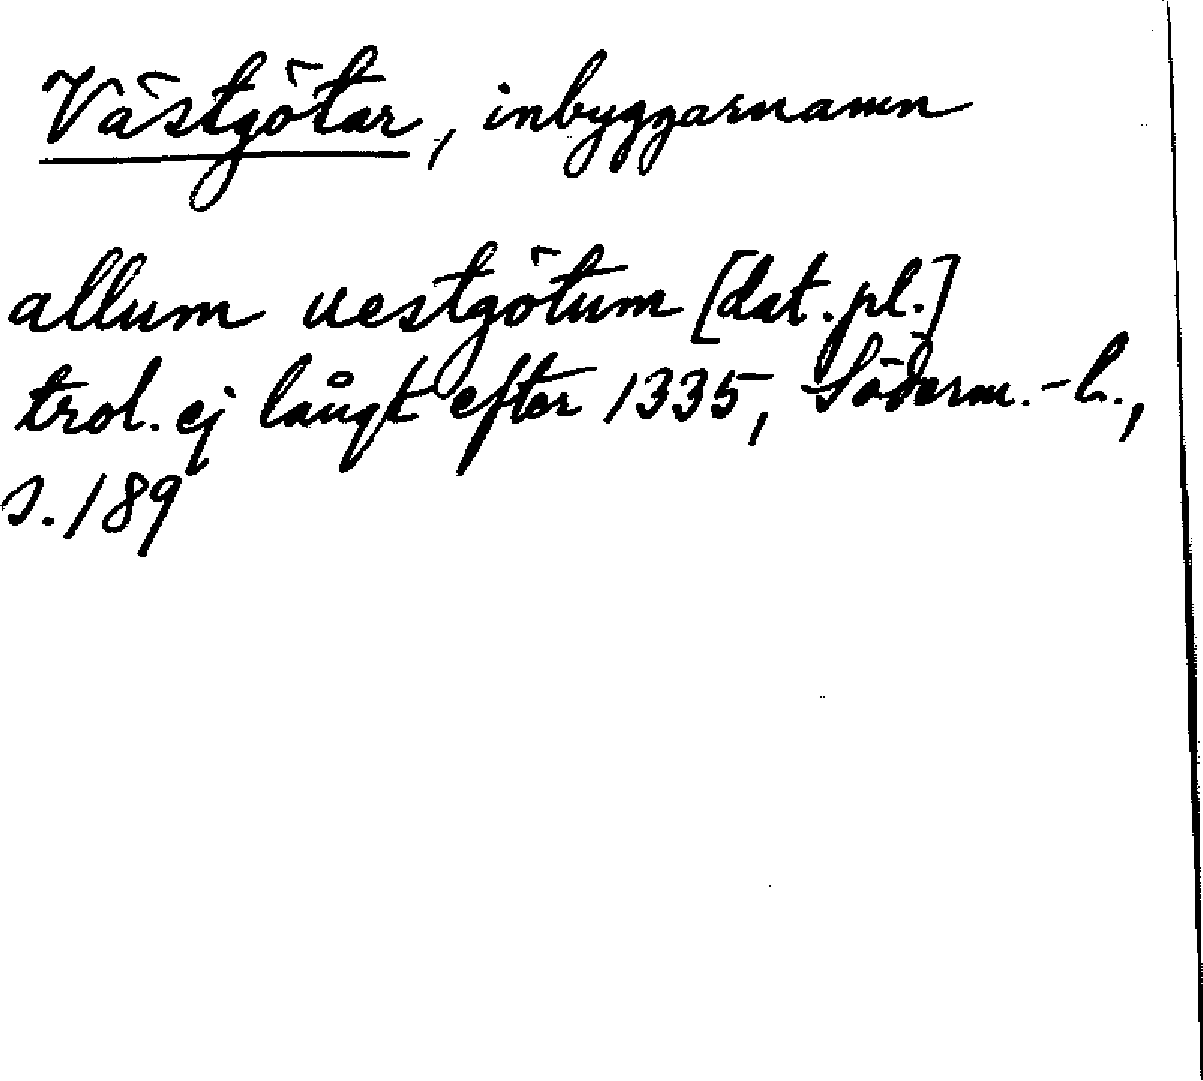 Västgötar, inbyggarnamn
allum uestgötum [dat. pl.]
trol. ej långt efter 1335, Söderm.-L.,
s. 189